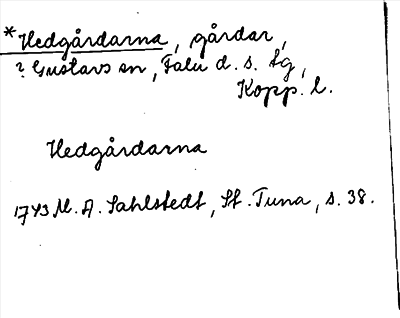 *Hedgårdarna, gårdar,
? Gustavs sn, Falu d. s. tg,
Kopp. l.
Hedgårdarna
1743 M. A. Sahlstedt, St. Tuna, s. 38.